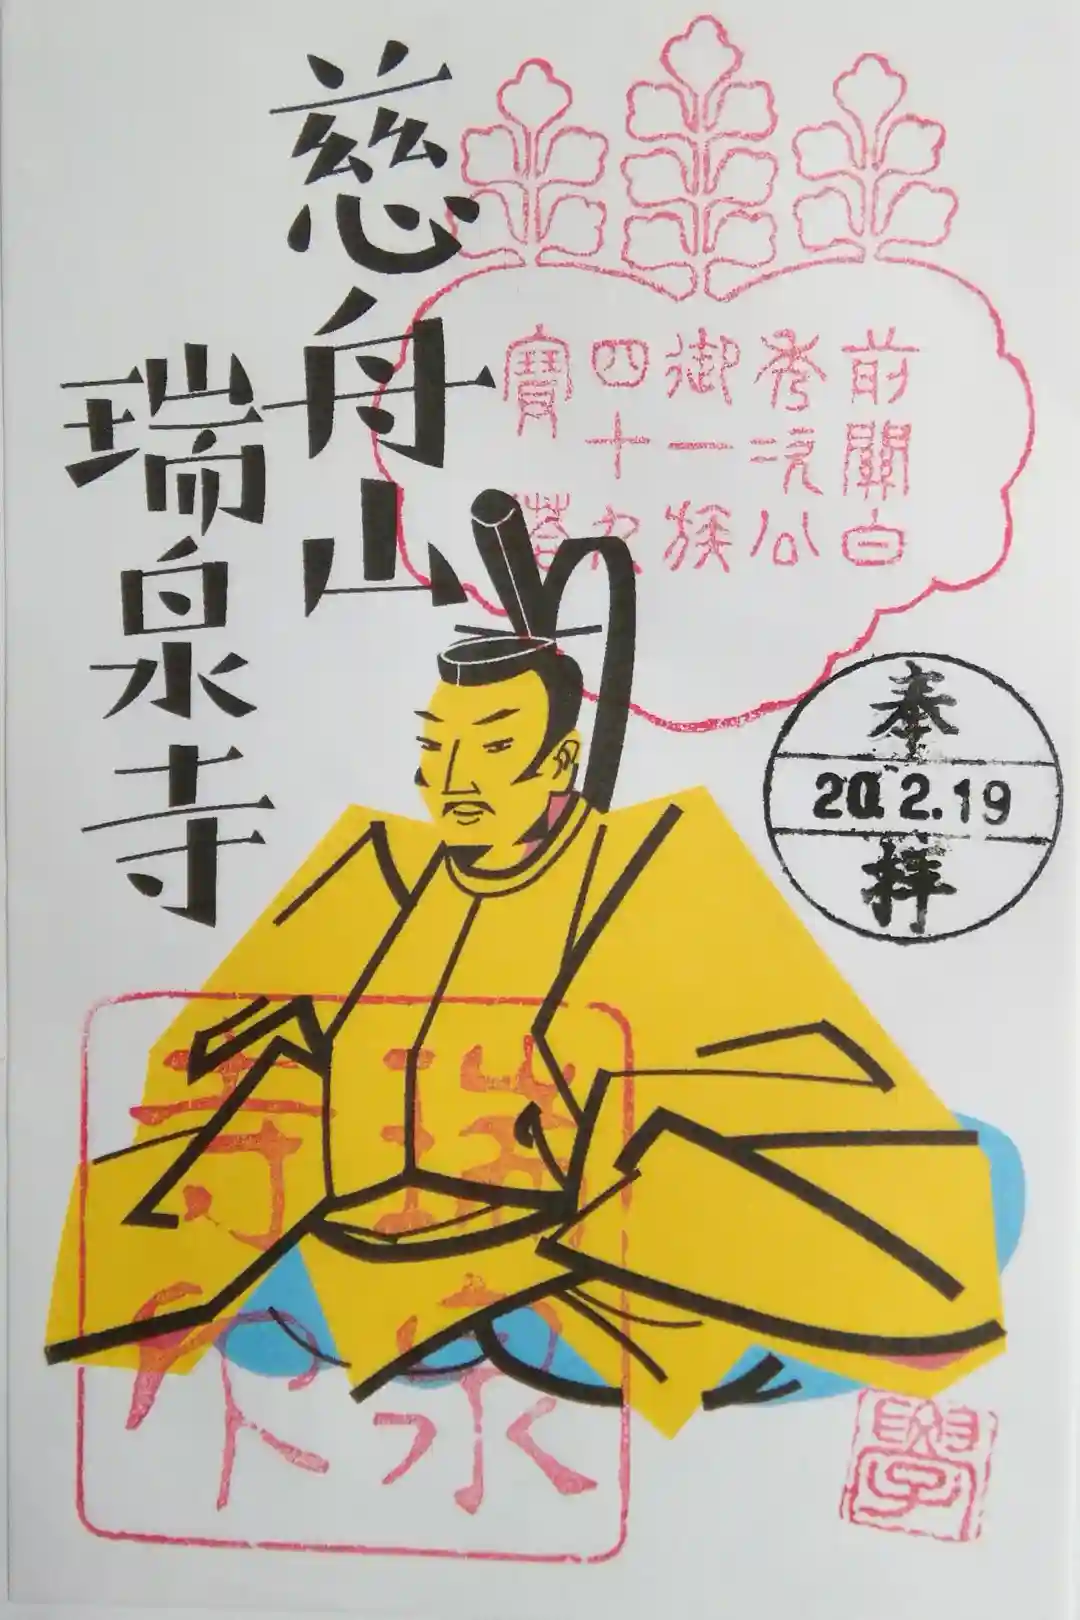 慈舟山
瑞泉寺
前關白
秀次公
御一族
四十九
寳塔
奉
20.2.19
拝
瑞泉
寺印
學